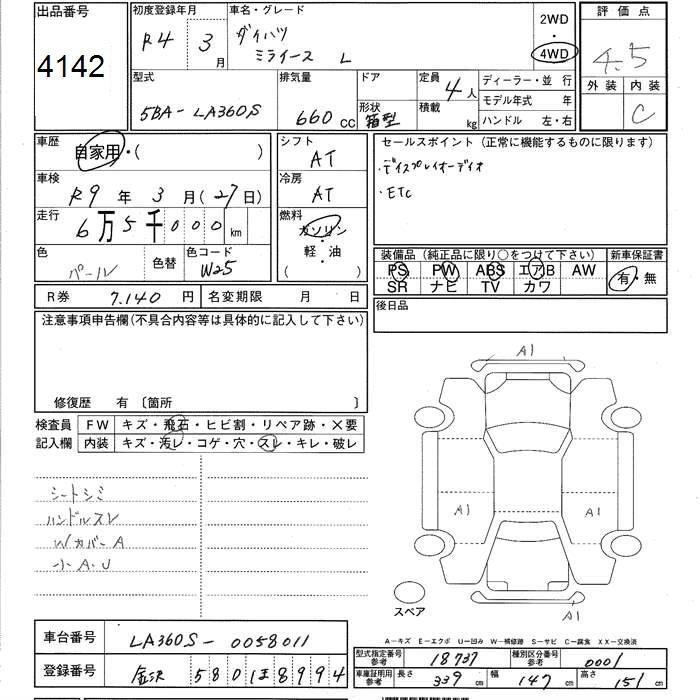 出品番号
4142
初度登録年月
R4 3月
車名・グレード
ダイハツ
ミライース L
2WD
・
4WD
評価点
4.5
外装 内装
C
型式
5BA-LA360S
排気量
660 CC
ドア
形状
箱型
定員
4人
積載
kg
ディーラー・並行
モデル年式 年
ハンドル 左・右
車歴
自家用・( )
車検
R9年 3月(27日)
走行
6万5千000km
色
パール
色替
色コード
W25
シフト
AT
冷房
AT
燃料
ガソリン
軽・油
( )
セールスポイント(正常に機能するものに限ります)
・ディスプレイオーディオ
・ETC
装備品(純正品に限り○をつけて下さい)
新車保証書
PS PW ABS エアB AW
SR ナビ TV カワ
有・無
R券 7.140円
名変期限 月 日
後日品
注意事項申告欄(不具合内容等は具体的に記入して下さい)
修復歴 有 〔箇所 〕
検査員
記入欄
FW キズ・飛石・ヒビ割・リペア跡・×要
内装 キズ・汚レ・コゲ・穴・スレ・キレ・破レ
シートシミ
ハンドルスレ
WカバーA
小A.U
A1
A1
A1
A1
スペア
A-キズ E-エクボ U-凹み W-補修跡 S-サビ C-腐食 XX-交換済
車台番号
LA360S-0058011
登録番号
580 8994
型式指定番号
参考
18737
種別区分番号
参考
0001
車庫証明用
参考
長さ
339cm
幅
147cm
高さ
151cm